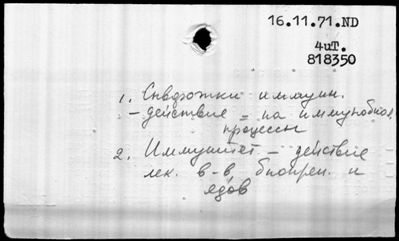 16.11.71.ND
4иТ.
818350
1. Сыворотки иммун.
– действие – на иммунобиол.
процессы
2. Иммунитет – действие
лек. в-в, и
ядов